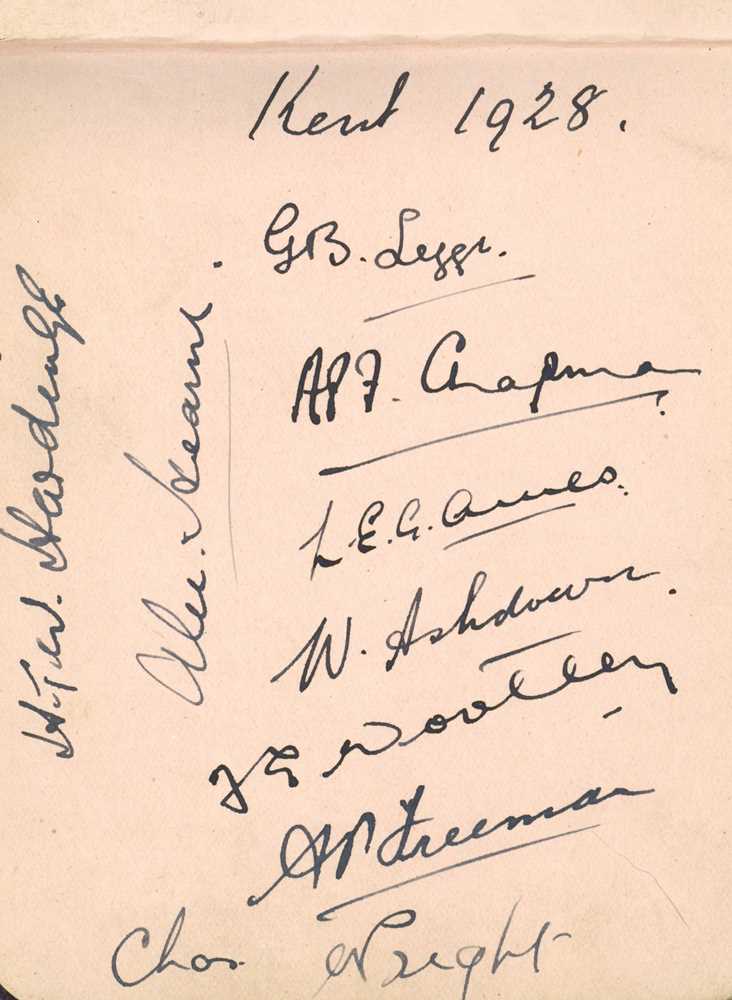 Kent 1928.
G.B. Legge.
A.P.F. Chapman
L.E.G. Ames.
W. Ashdown.
F E Woolley
A P Freeman
Chas. Wright
Alec. Hearne
H.T.W. Hardinge